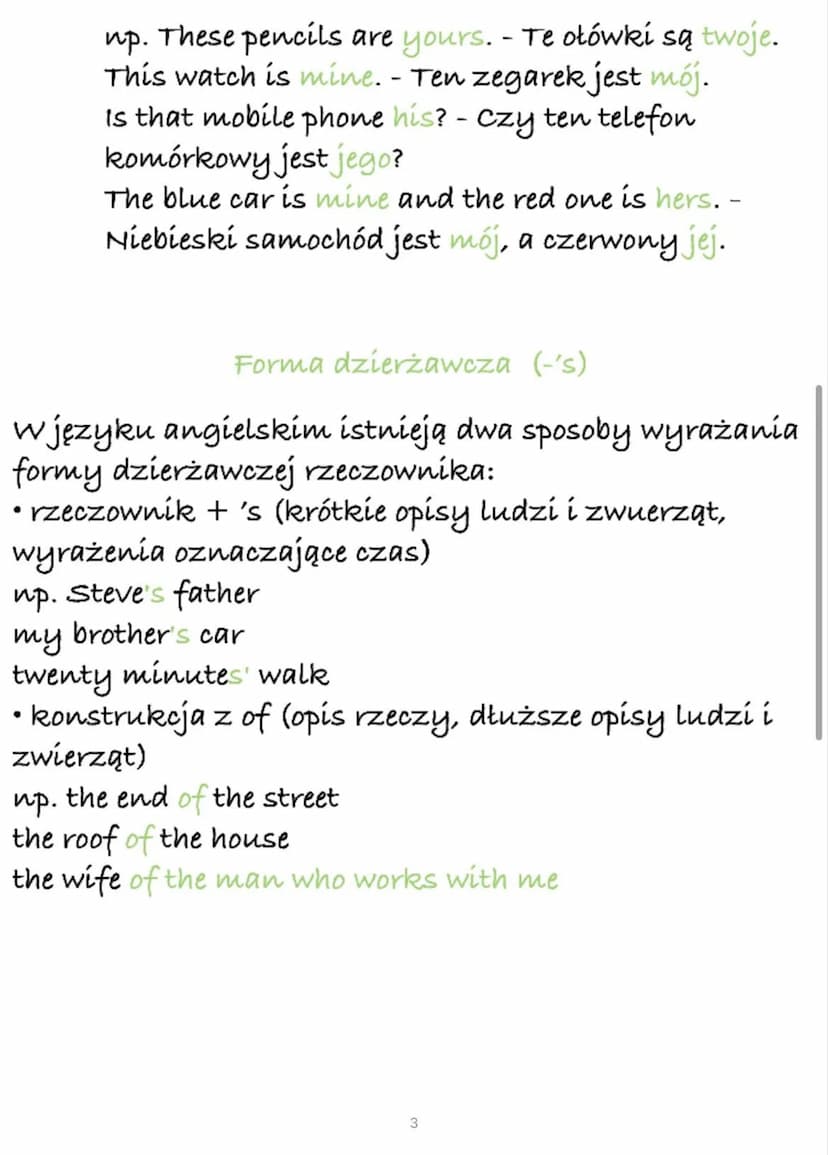 np. These pencils are yours. - Te ołówki są twoje.
This watch is mine. - Ten zegarek jest mój.
Is that mobile phone his? - Czy ten telefon
komórkowy jest jego?
The blue car is mine and the red one is hers. -
Niebieski samochód jest mój, a czerwony jej.
Forma dzierżawcza (-'s)
W języku angielskim istnieją dwa sposoby wyrażania
formy dzierżawczej rzeczownika:
• rzeczownik + 's (krótkie opisy ludzi i zwuerząt,
wyrażenia oznaczające czas)
np. Steve's father
my brother's car
twenty minutes' walk
• konstrukcja z of (opis rzeczy, dłuższe opisy ludzi i
zwierząt)
np. the end of the street
the roof of the house
the wife of the man who works with me
3